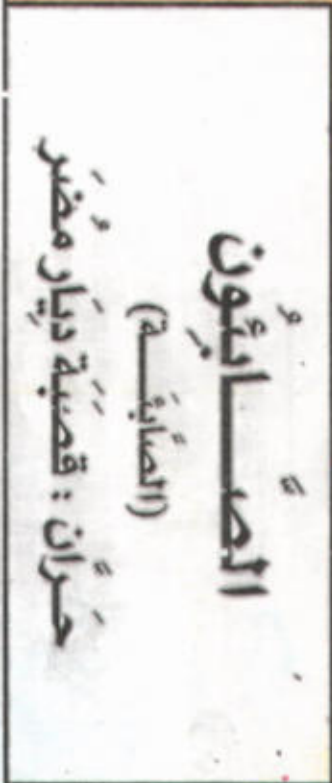 الصَّــابِئُون
(الصَّابِئَــة)
حَرَّان : قَصَبَة دِيَار مُضَر